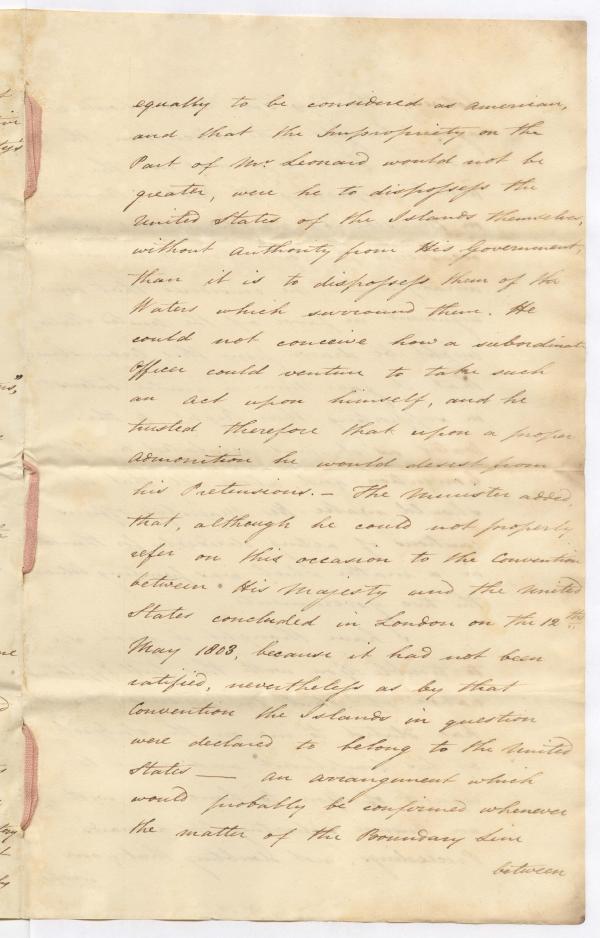 equally to be considered as american,
and that the Impropriety on the
Part of Mr. Leonard would not be
greater, were he to dispossess the
United States of the Islands themselves,
without authority from His Government,
than it is to dispossess them of the
Waters which surround them. He
could not conceive how a subordinate
Officer could venture to take such
an act upon himself, and he
trusted therefore that upon a proper
admonition he would desist from
his Pretensions. — The Minister added,
that, although he could not properly
refer on this occasion to the Convention
between His Majesty and the United
States concluded in London on the 12th
May 1803, because it had not been
ratified, nevertheless as by that
Convention the Islands in question
were declared to belong to the United
States — an arrangement which
would probably be confirmed whenever
the matter of the Boundary Line
between